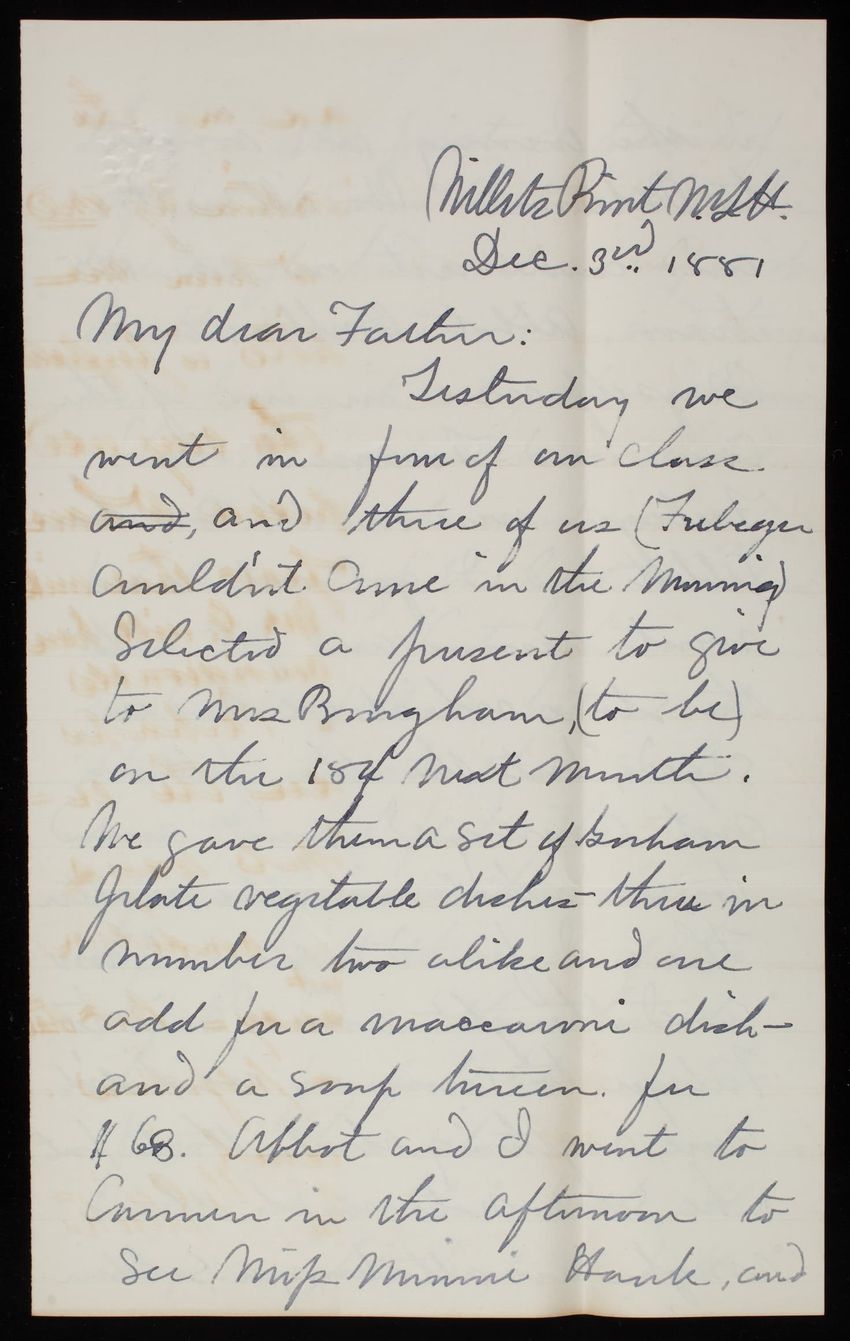 Willets Point N.Y.H.
Dec. 3rd. 1881
My dear Father:
Yesterday we
went in four of our class
and, and three of us (Fiebeger
couldn't come in the morning)
selected a present to give
to Mrs Bingham, (to be)
on the 15th next month.
We gave them a set of Gorham
plate vegetable dishes – three in
number two alike and one
odd for a maccaroni dish –
and a soup tureen. for
$ 68. Abbot and I went to
Carmen in the afternoon to
see Miss Minnie Hauk, and